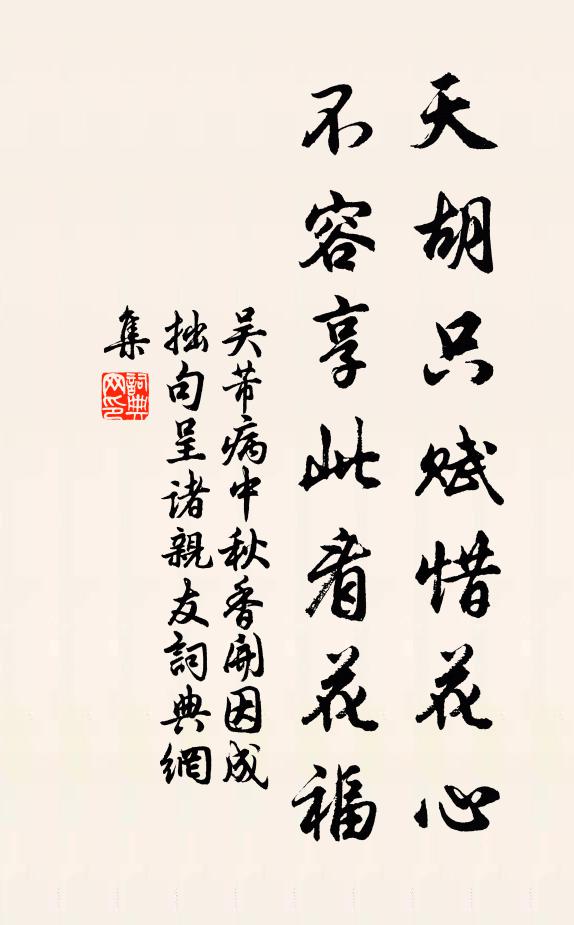 天胡只赋惜花心
不容享此看花福
吴芾病中秋香開因成
拙句呈诸親友詞典網
集
詞典网印